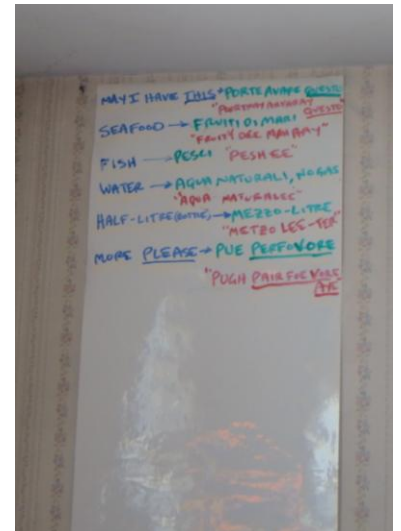 MAY I HAVE THIS → PORTE AVAPE QUESTO
QUESTO"
SEAFOOD → FRUITI DI MARI
"FRUITY DEE MAHRAY"
FISH → PESCI "PESHEE"
WATER → AQUA NATURALI, NO GAS
"AQUA NATURALEE"
HALF-LITRE (BOTTLE) → MEZZO-LITRE
"METZO LEE-TER"
MORE PLEASE → PUE PERFOVORE
"PUGH PAIR FOE VORE
AYE"